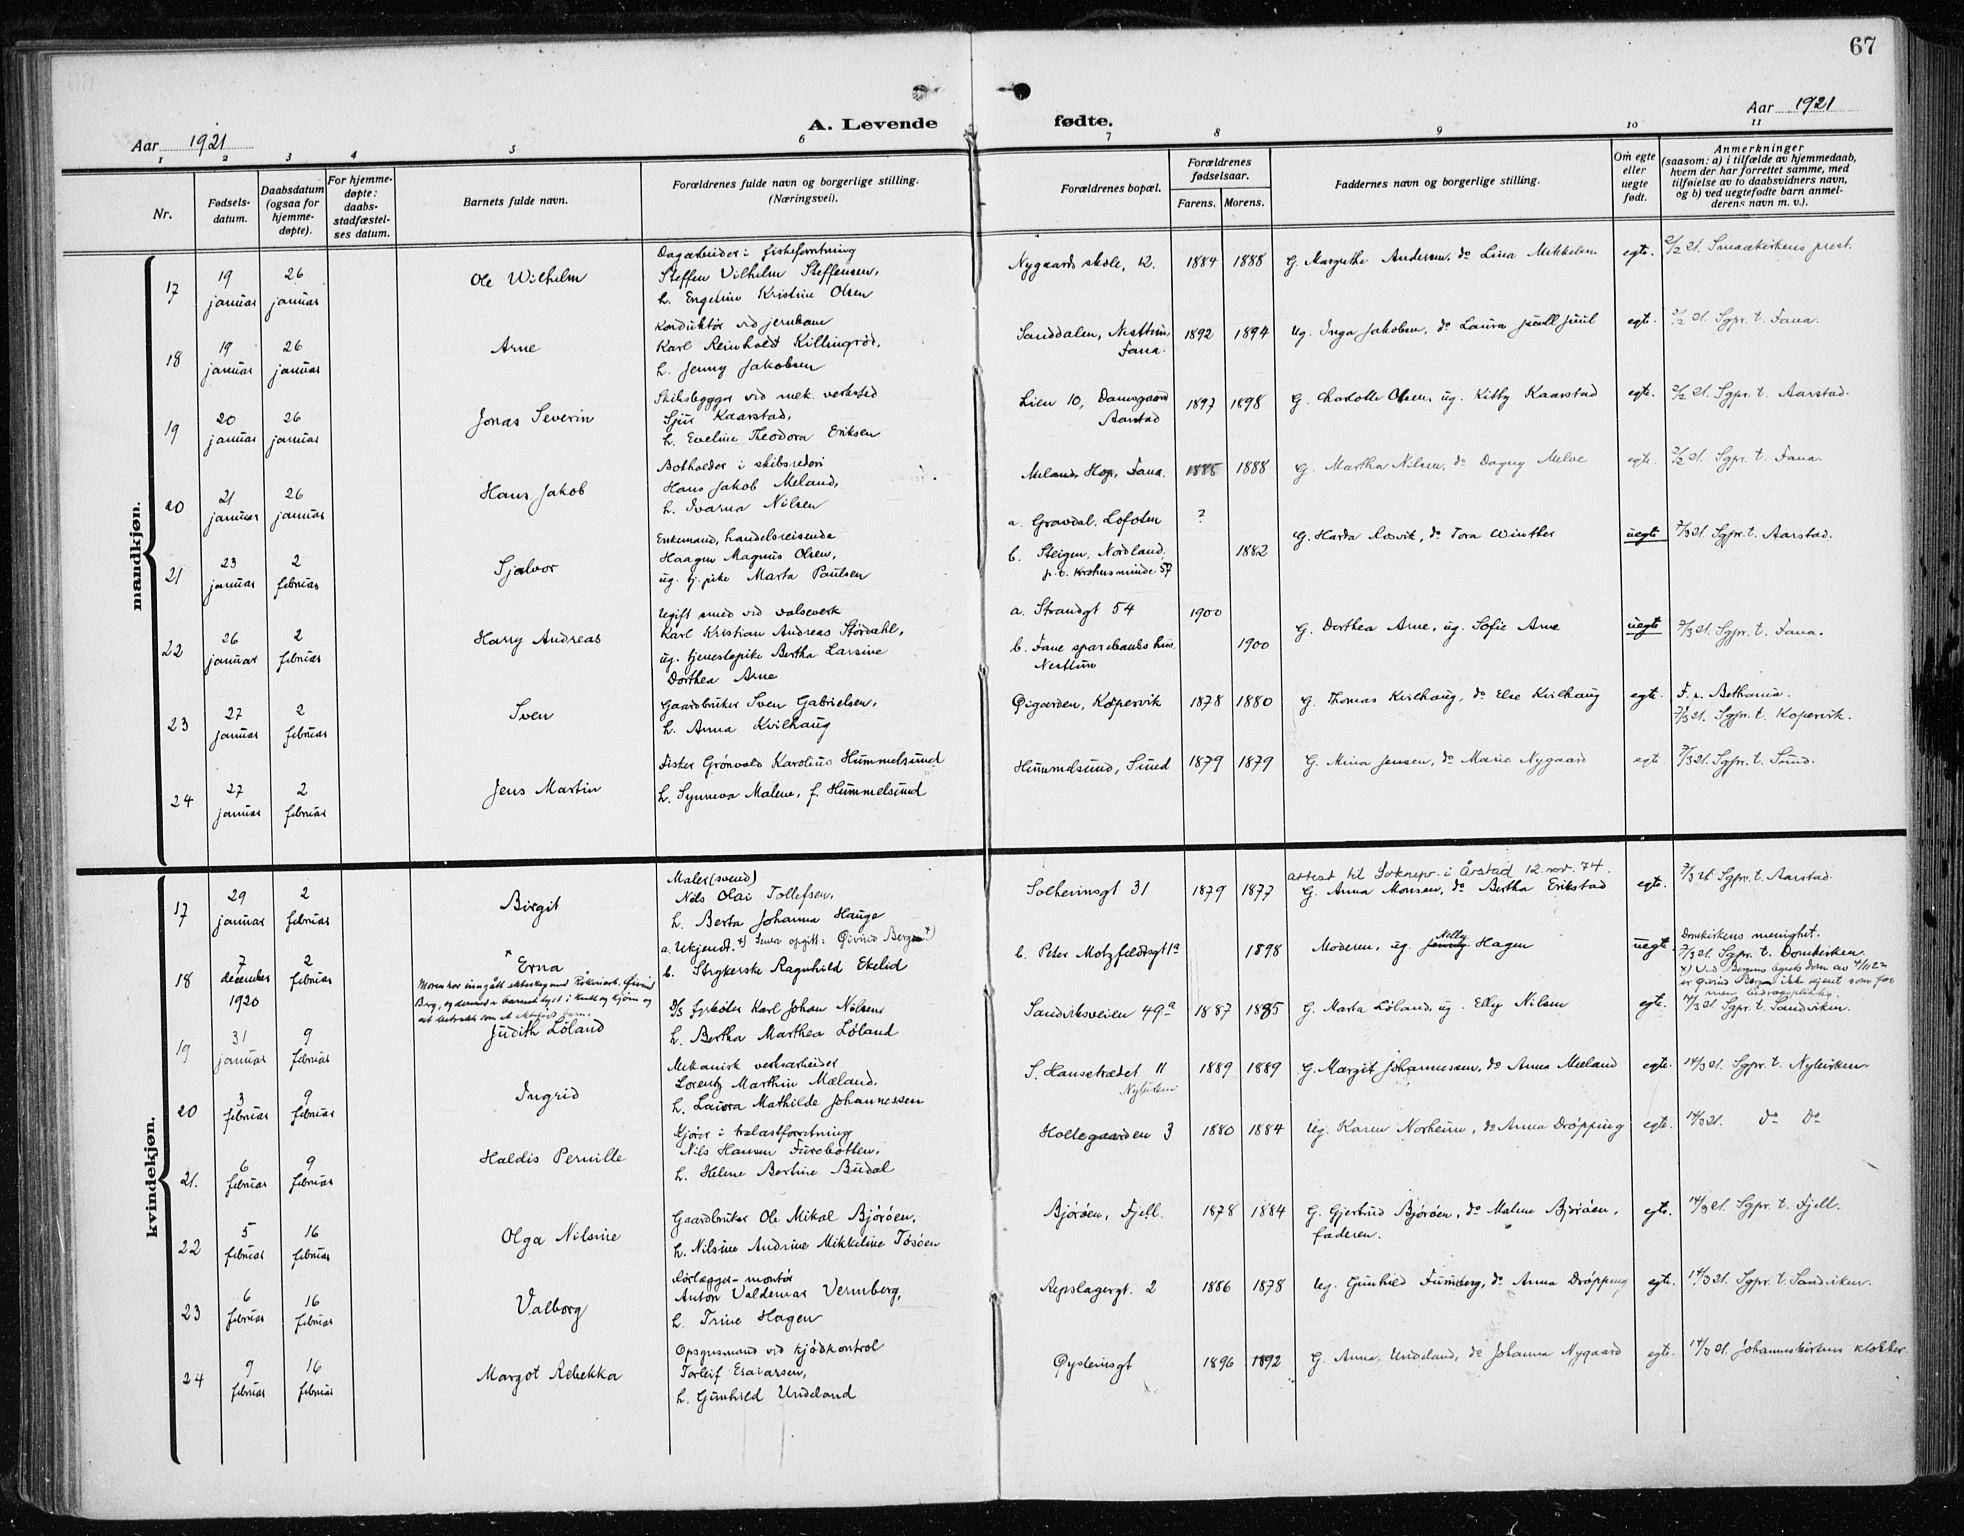 67
Aar 1921
A. Levende fødte.
Aar 1921
1 2 3 4 5 6 7 8 9 10 11
Nr.
Fødsels-
datum.
Daabsdatum
(ogsaa for
hjemme-
døpte).
For hjemme-
døpte:
daabs-
stadfæstel-
ses datum.
Barnets fulde navn.
Forældrenes fulde navn og borgerlige stilling.
(Næringsvei).
Forældrenes bopæl.
Forældrenes
fødselsaar.
Farens. Morens.
Faddernes navn og borgerlige stilling.
Om egte
eller
uegte
født.
Anmerkninger
(saasom: a) i tilfælde av hjemmedaab,
hvem der har forrettet samme, med
tilføielse av to daabsvidners navn,
og b) ved uegtefødte barn anmel-
derens navn m. v.).
mandkjøn.
17
19 januar
26 januar
Ole Wilhelm
Dagarbeider i fiskeforretning
Steffen Vilhelm Steffensen,
h. Engeline Kristine Olsen
Nygaards skole, 12.
1884 1888
G. Margrethe Andersen, do Lina Mikkelsen
egte.
2/2 21. Smaakirkens prest.
18
19 januar
26 januar
Arne
Konduktør ved jernbane
Karl Reinholdt Killingrød,
h. Jenny Jakobsen
Sanddalen, Nesttun,
Fana.
1892 1894
ug. Inga Jakobsen, do Laura Juul
egte.
2/2 21. Sgpr. t. Fana.
19
20 januar
26 januar
Jonas Severin
Skibsbygger ved mek. verksted
Sjur Kaarstad,
h. Eveline Theodora Eriksen
Lien 10, Damsgaard
Aarstad
1897 1898
G. Charlotte Olsen, ug. Kitty Kaarstad
egte.
2/2 21. Sgpr. t. Aarstad.
20
21 januar
26 januar
Hans Jakob
Botholder i skibsrederi
Hans Jakob Meland,
h. Ivarna Nilsen
Meland, Hop, Fana.
1885 1888
G. Martha Nilsen, do Dagny Melve
egte.
2/2 21. Sgpr. t. Fana.
21
23 januar
2 februar
Sjalvor
Enkemand, handelsreisende
Haagen Magnus Olsen,
ug. tj.pike Marta Paulsen
a. Gravdal, Lofoten
b. Steigen, Nordland,
?
1882
G. Harda Rosvik, do Tora Winther
uegte
7/3 21. Sgpr. t. Aarstad.
22
26 januar
2 februar
Harry Andreas
Ugift smed ved valseverk
Karl Kristian Andreas Stördahl,
ug. tjenestepike Bertha Larsine
Dorthea Arne
a. Strandgt 54
b. Fane sparebanks hus,
Nesttun
1900
1900
G. Dorthea Arne, ug. Sofie Arne
uegte
7/3 21. Sgpr. t. Fana.
23
27 januar
2 februar
Sven
Gaardbruker Sven Gabrielsen,
h. Anna Kvilhaug
Øigarden, Kopervik
1878 1880
G. Thomas Kvilhaug, do Else Kvilhaug
egte.
F. p. Bethania.
7/3 21. Sgpr. t. Kopervik.
24
27 januar
2 februar
Jens Martin
Fisker Grönvald Karolius Hummelsund
h. Synneva Malene, f. Hummelsund
Hummelsund, Sund
1879 1879
G. Mina Jensen, do Marie Nygaard
egte
7/3 21. Sgpr. t. Sund.
kvindekjøn.
17
29 januar
2 februar
Birgit
Maler(svend)
Nils Olai Tollefsen,
h. Berta Johanna Hauge
Solheimsgt 31
1879 1877
attest til Soknepr. i Årstad 12. nov. 74.
G. Anna Monsen, do Bertha Erikstad
egte.
7/3 21. Sgpr. t. Aarstad.
18
7 december 1920
2 februar
Erna
a. Ukjendt. x) Senere opgitt: Øivind Berg
b. Strykerske Ragnhild Ekelid
b. Peter Motzfeldtsgt 1a
1898
Moderen, ug. Nelly Hagen
uegte
Domkirkens menighet.
7/3 21. Sgpr. t. Domkirken.
19
31 januar
9 februar
Judith Löland
D/S fyrböter Karl Johan Nilsen,
h. Bertha Marthea Löland
Sandviksveien 49a
1887 1885
G. Marta Löland, ug. Elly Nilsen
egte.
14/3 21. Sgpr. t. Sandviken.
20
3 februar
9 februar
Ingrid
Mekanisk verksarbeider
Lorentz Marthin Mæland,
h. Laura Mathilde Johannessen
S. Hansstrædet 11
Nykirken
1889 1889
G. Margit Johannessen, do Anna Mæland
egte.
14/3 21. Sgpr. t. Nykirken
21.
6 februar
9 februar
Haldis Pernille
Kjörer i trælastforretning
Nils Hansen Furebotten,
h. Helene Bertine Budal
Holtegaarden 3
1880 1884
ug. Karen Norheim, do Anna Dröpping
egte.
14/3 21. do Do
22
5 februar
16 februar
Olga Nilsine
Gaardbruker Ole Mikal Björöen,
h. Nilsine Andrine Mikkeline Tösöen
Björöen, Fjell.
1878 1884
G. Gjertrud Björöen, do Malene Björöen,
faderen.
egte.
14/3 21. Sgpr. t. Fjell.
23
6 februar
16 februar
Valborg
Rörlægger-montör
Anton Valdemar Vermberg,
h. Trine Hagen
Repslagergt. 2
1886 1878
ug. Gunhild Furuberg, do Anna Dröpping
egte.
14/3 21. Sgpr. t. Sandviken.
24
9 februar
16 februar
Margot Rebekka
Opsynsmand ved kjödkontrol
Torleif Esaiassen,
h. Gunhild Undeland
Øysteinsgt
1896 1892
G. Anna Undeland, do Johanna Nygaard
egte.
14/3 21. Johanneskirkens klokker